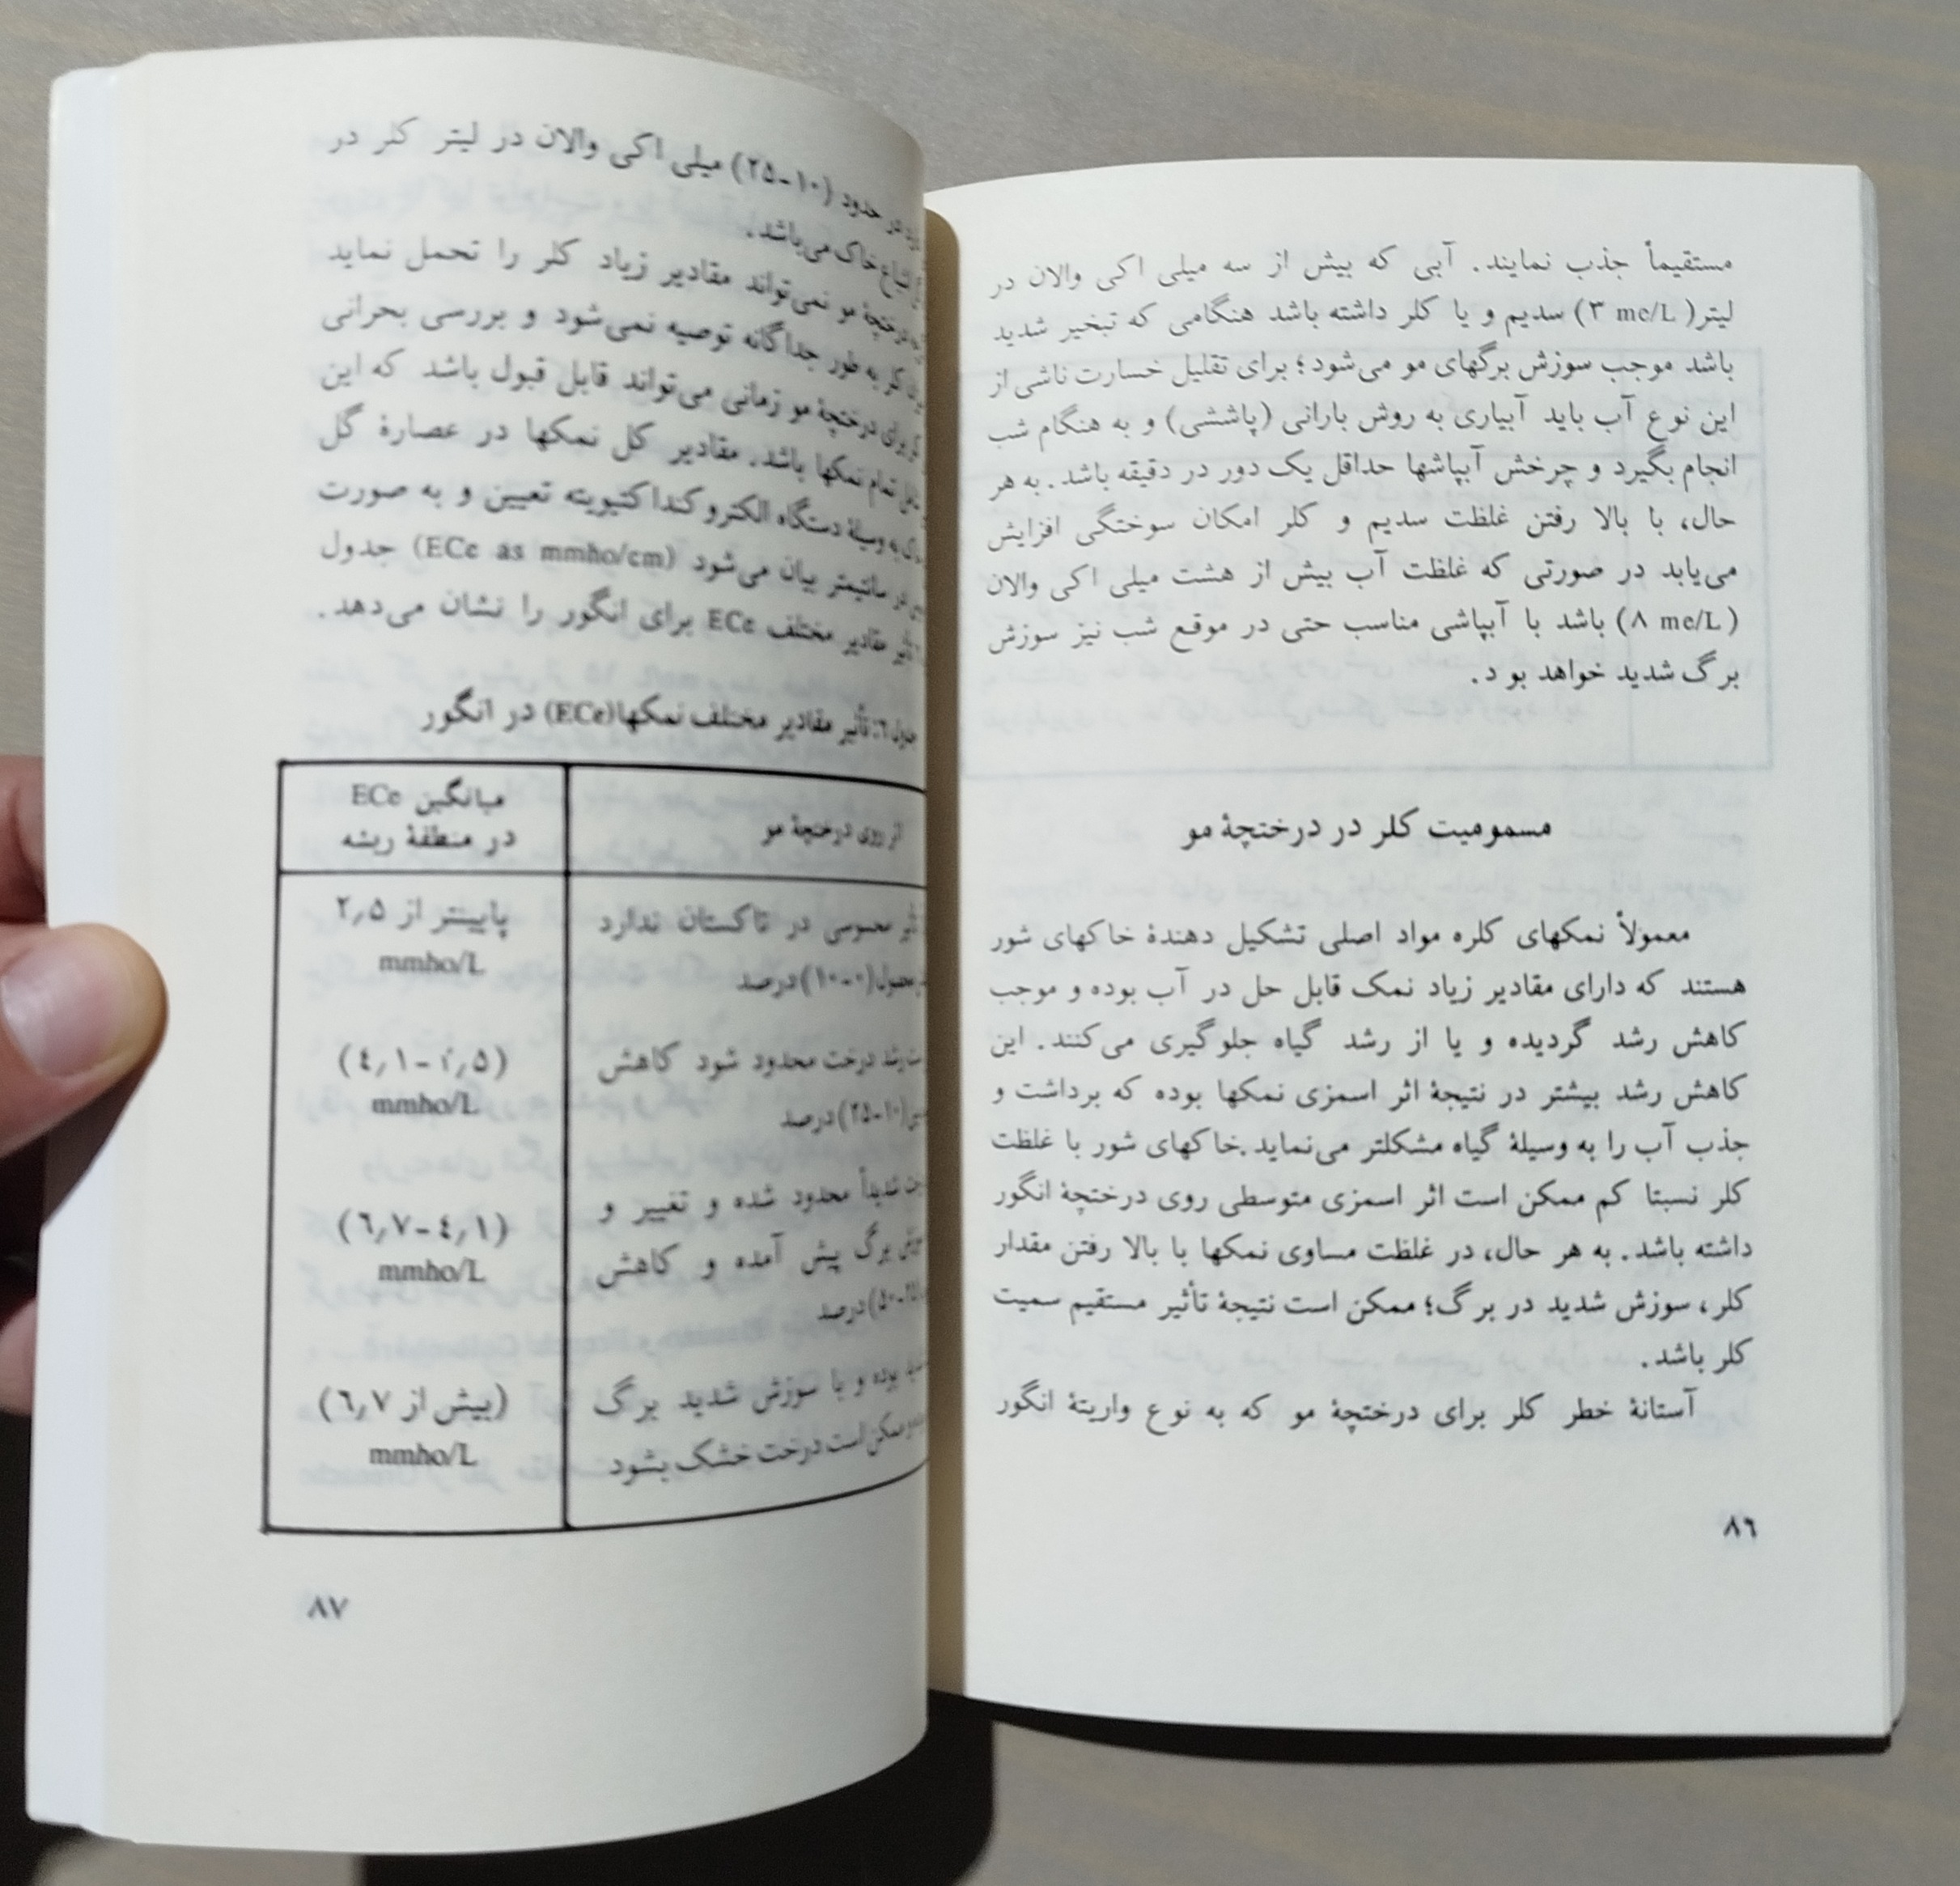 مستقیماً جذب نمایند. آبی که بیش از سه میلی اکی والان در
لیتر (۳ me/L) سدیم و یا کلر داشته باشد هنگامی که تبخیر شدید
باشد موجب سوزش برگهای مو می‌شود؛ برای تقلیل خسارت ناشی از
این نوع آب باید آبیاری به روش بارانی (پاششی) و به هنگام شب
انجام بگیرد و چرخش آبپاشها حداقل یک دور در دقیقه باشد. به هر
حال، با بالا رفتن غلظت سدیم و کلر امکان سوختگی افزایش
می‌یابد در صورتی که غلظت آب بیش از هشت میلی اکی والان
(۸ me/L) باشد با آبپاشی مناسب حتی در موقع شب نیز سوزش
برگ شدید خواهد بود.
مسمومیت کلر در درختچهٔ مو
معمولاً نمکهای کلره مواد اصلی تشکیل دهندهٔ خاکهای شور
هستند که دارای مقادیر زیاد نمک قابل حل در آب بوده و موجب
کاهش رشد گردیده و یا از رشد گیاه جلوگیری می‌کنند. این
کاهش رشد بیشتر در نتیجهٔ اثر اسمزی نمکها بوده که برداشت و
جذب آب را به وسیلهٔ گیاه مشکلتر می‌نماید. خاکهای شور با غلظت
کلر نسبتا کم ممکن است اثر اسمزی متوسطی روی درختچهٔ انگور
داشته باشد. به هر حال، در غلظت مساوی نمکها با بالا رفتن مقدار
کلر، سوزش شدید در برگ؛ ممکن است نتیجهٔ تأثیر مستقیم سمیت
کلر باشد.
آستانهٔ خطر کلر برای درختچهٔ مو که به نوع واریتهٔ انگور
۸٦
در حدود (۱۰-۲۵) میلی اکی والان در لیتر کلر در
اشباع خاک می‌باشد.
درختچهٔ مو نمی‌تواند مقادیر زیاد کلر را تحمل نماید
کلر به طور جداگانه توصیه نمی‌شود و بررسی بحرانی
کلر برای درختچهٔ مو زمانی می‌تواند قابل قبول باشد که این
تمام نمکها باشد. مقادیر کل نمکها در عصارهٔ گل
به وسیلهٔ دستگاه الکتروکنداکتیویته تعیین و به صورت
در سانتیمتر بیان می‌شود (ECe as mmho/cm) جدول
تأثیر مقادیر مختلف ECe برای انگور را نشان می‌دهد.
جدول ٦: تأثیر مقادیر مختلف نمکها (ECe) در انگور
اثر روی درختچهٔ مو
میانگین ECe
در منطقهٔ ریشه
محسوسی در تاکستان ندارد
محصول (۰-۱۰) درصد
پایینتر از ۲٫۵
mmho/L
رشد درخت محدود شود کاهش
(۱۰-۲۵) درصد
mmho/L
شدیداً محدود شده و تغییر و
برگ پیش آمده و کاهش
(۲۵-۵۰) درصد
(٤٫۱-٦٫۷)
mmho/L
بوده و با سوزش شدید برگ
ممکن است درخت خشک بشود
(بیش از ٦٫۷)
mmho/L
۸۷